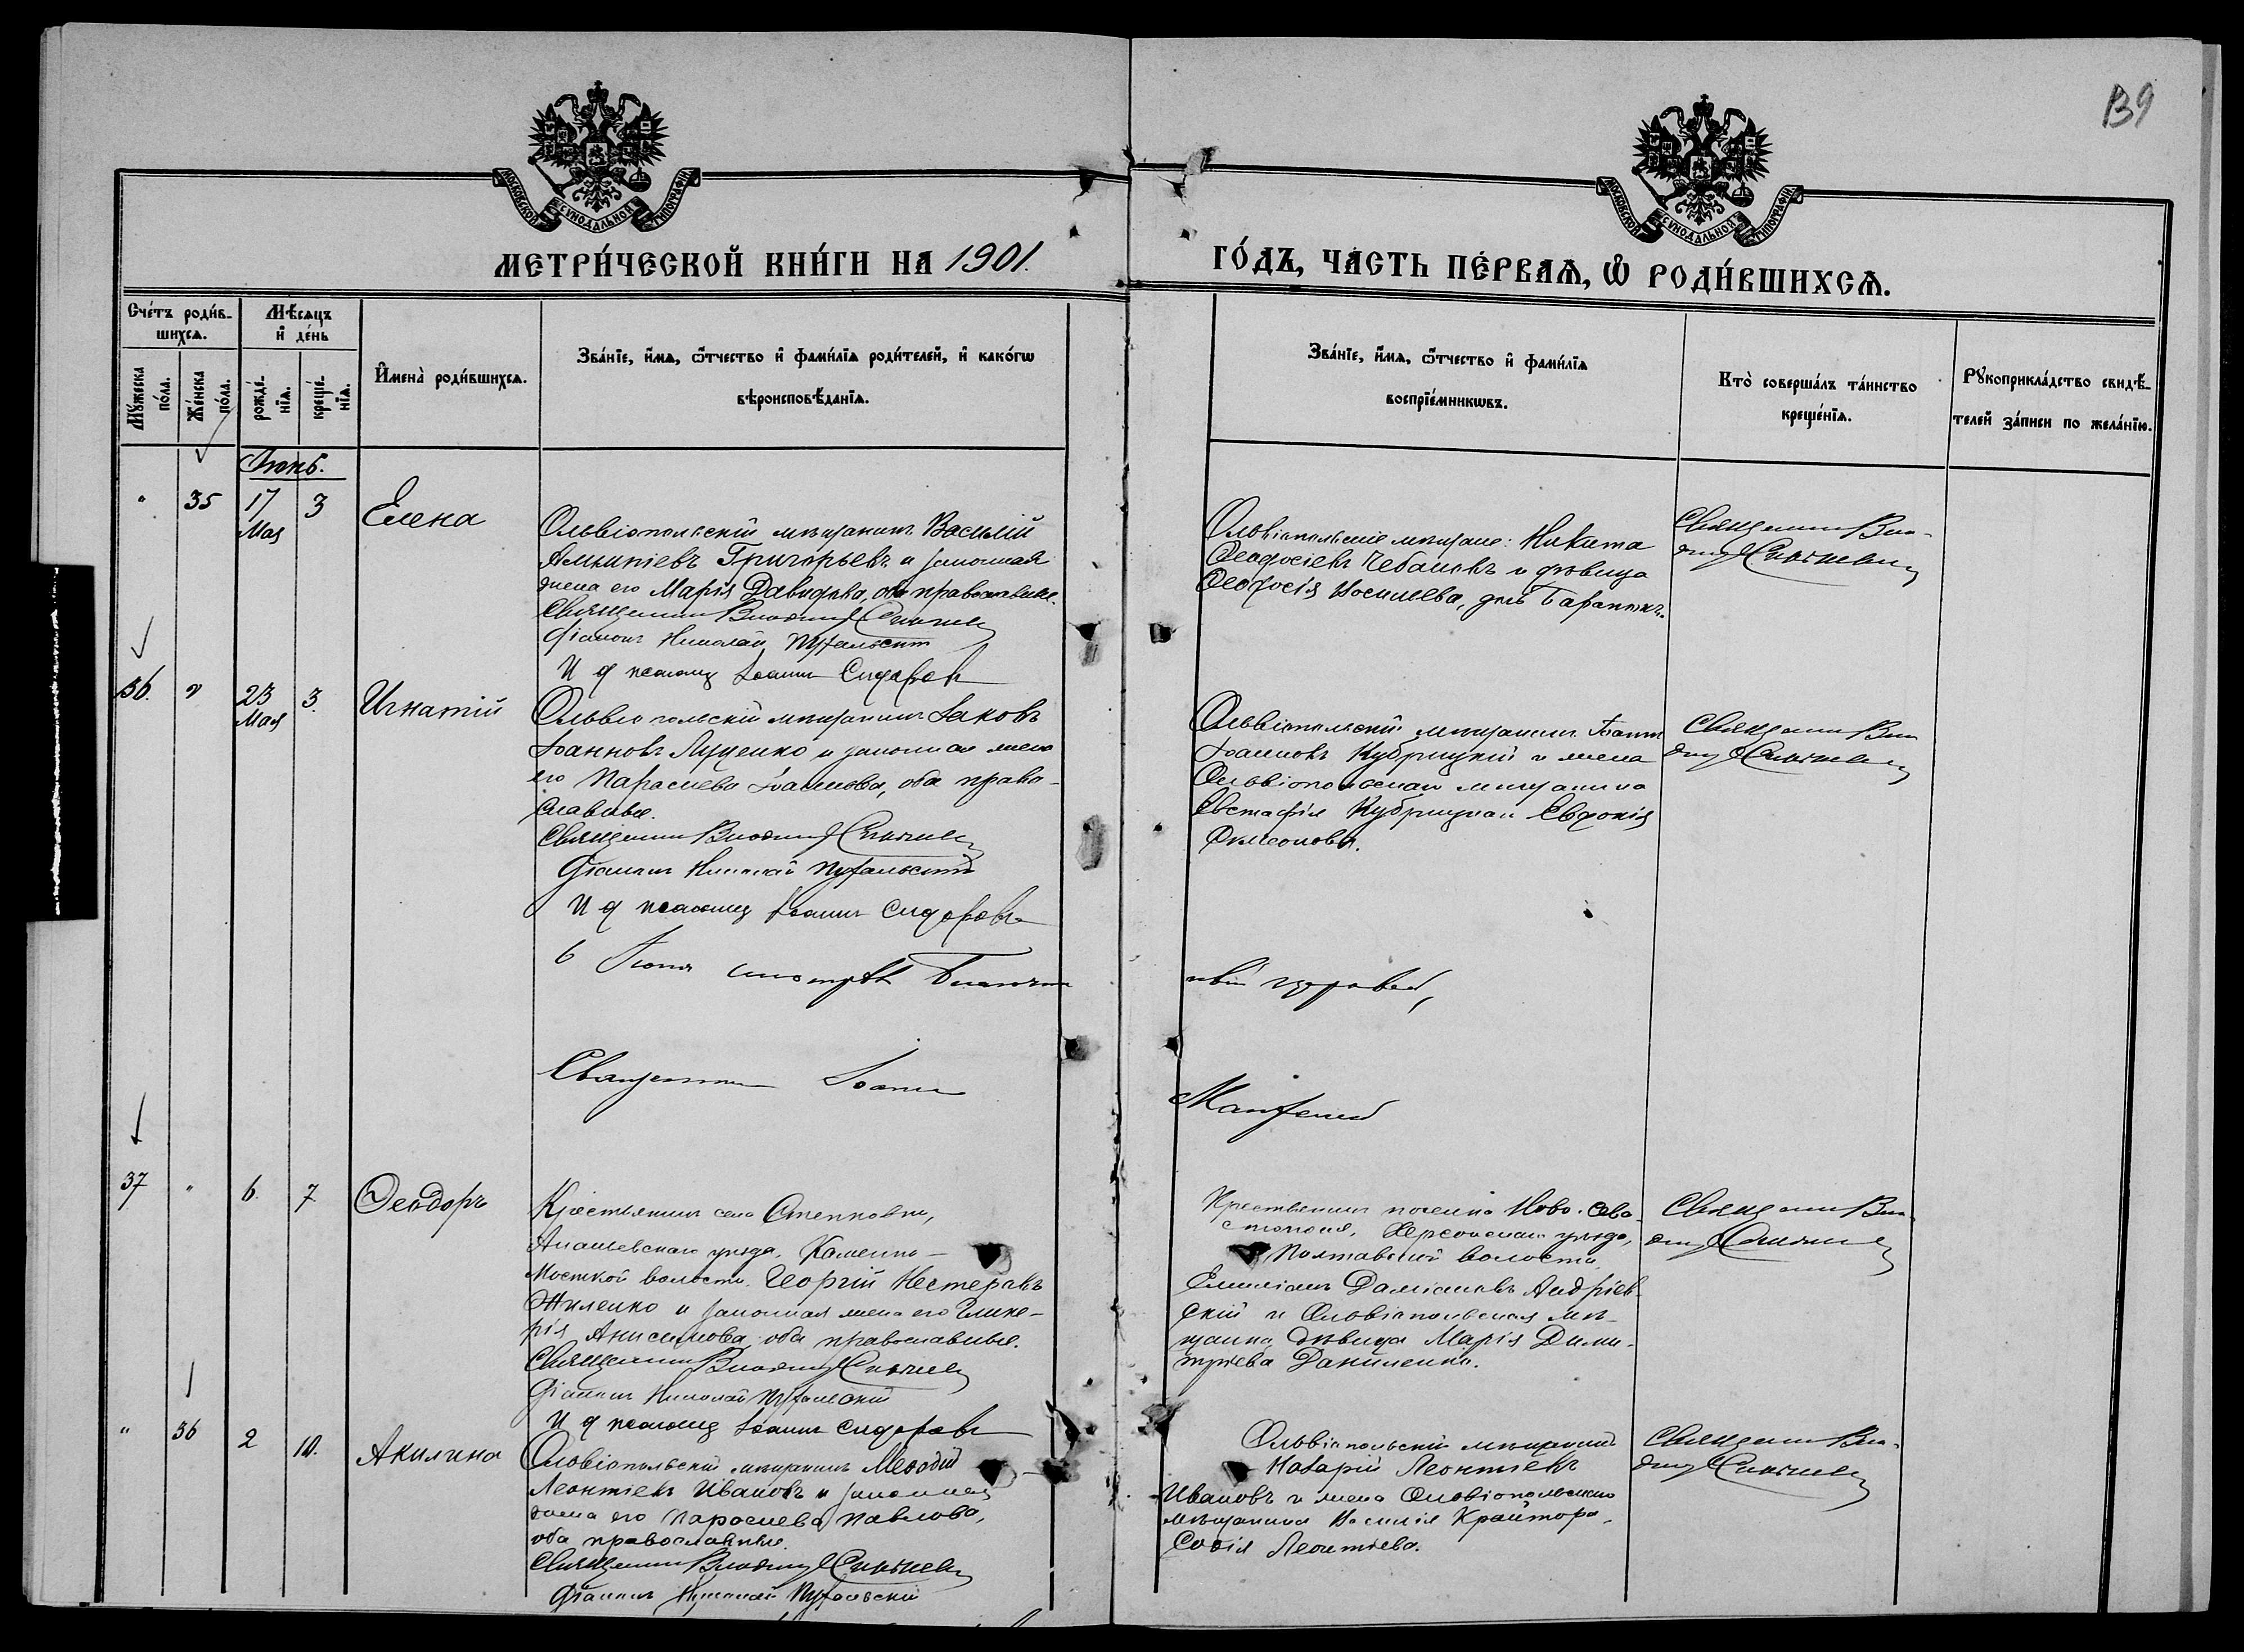 139
МОСКОВСКОЙ СУНОДАЛЬНОЙ ТИПОГРАФІИ
МОСКОВСКОЙ СУНОДАЛЬНОЙ ТИПОГРАФІИ
МЕТРИ́ЧЕСКОЙ КНИ́ГИ НА 1901.
ГО́ДЪ, ЧА́СТЬ ПЕ́РВАѦ, Ѡ РОДИ́ВШИХСѦ.
Сче́тъ роди́в-
шихсѧ.
Мѣ́сѧцъ
и де́нь
Му́жеска
по́ла.
Же́нска
по́ла.
рожде́-
нїѧ.
креще́-
нїѧ.
Имена̀ роди́вшихсѧ.
Зва́нїе, и́мѧ, ѻ́тчество и фами́лїѧ роди́телей, и како́гѡ
вѣроисповѣ́данїѧ.
Зва́нїе, и́мѧ, ѻ́тчество и фами́лїѧ
воспрїе́мникѡвъ.
Кто̀ соверша́лъ та́инство
креще́нїѧ.
Рꙋкоприкла́дство свидѣ́-
телей за́писи по жела́нїю.
Іюнь.
" 35 17 3 Елена
Мая
Ольвіопольскій мѣщанинъ Василій
Григорьевъ и законная
жена его Марія Давидова, оба православные.
Священникъ
Діаконъ Николай
И д псаломщ Іоаннъ Сидоровъ
Ольвіопольскіе мѣщане: Никита
Ѳеодосіевъ Чебановъ и дѣвица
Ѳеодосія Василіева, дочь
Священникъ Вла-
36. " 23 3. Игнатій
Мая
Ольвіопольскій мѣщанинъ Іаковъ
Іоанновъ Луценко и законная жена
его Параскева Іоаннова, оба право-
славные.
Священникъ
Діаконъ Николай
И д псаломщ Іоаннъ Сидоровъ
Ольвіопольскій мѣщанинъ Іоаннъ
Іоанновъ Кубрицкій и жена
Ольвіопольскаго мѣщанина
Евстафія Кубрицкаго Евдокія
Симеонова.
Священникъ Вла-
6 Іюня смотрѣлъ Благочин
ный
Священникъ Іоаннъ
37 " 6. 7. Ѳеодоръ
Крестьянинъ села Степковки,
Ананьевскаго уѣзда, Каменно-
Мостской волости Георгій Нестеровъ
Жиленко и законная жена его Глике-
рія Анисимова, оба православные.
Священникъ
Діаконъ Николай
И д псаломщ Іоаннъ Сидоровъ
Крестьянинъ поселка Ново-Сева-
стополя, Херсонскаго уѣзда,
Полтавской волости
Емиліанъ Даміановъ Андріев-
скій и Ольвіопольская мѣ-
щанка дѣвица Марія Дими-
тріева Даниленко.
Священникъ Вла-
" 36 2 10. Акилина
Ольвіопольскій мѣщанинъ Меѳодій
Леонтіевъ Ивановъ и законная
жена его Параскева Павлова,
оба православные.
Священникъ
Діаконъ Николай
Ольвіопольскій мѣщанинъ
Назарій Леонтіевъ
Ивановъ и жена Ольвіопольскаго
мѣщанина Василія Крайтора,
Софія Леонтіева.
Священникъ Вла-